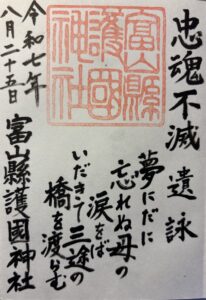 忠魂不滅 遺詠
夢にだに
忘れぬ母の
涙をば
いだきて三途の
橋を渡らむ
富山縣護國神社
富山縣
護國
神社
令和七年
八月二十五日